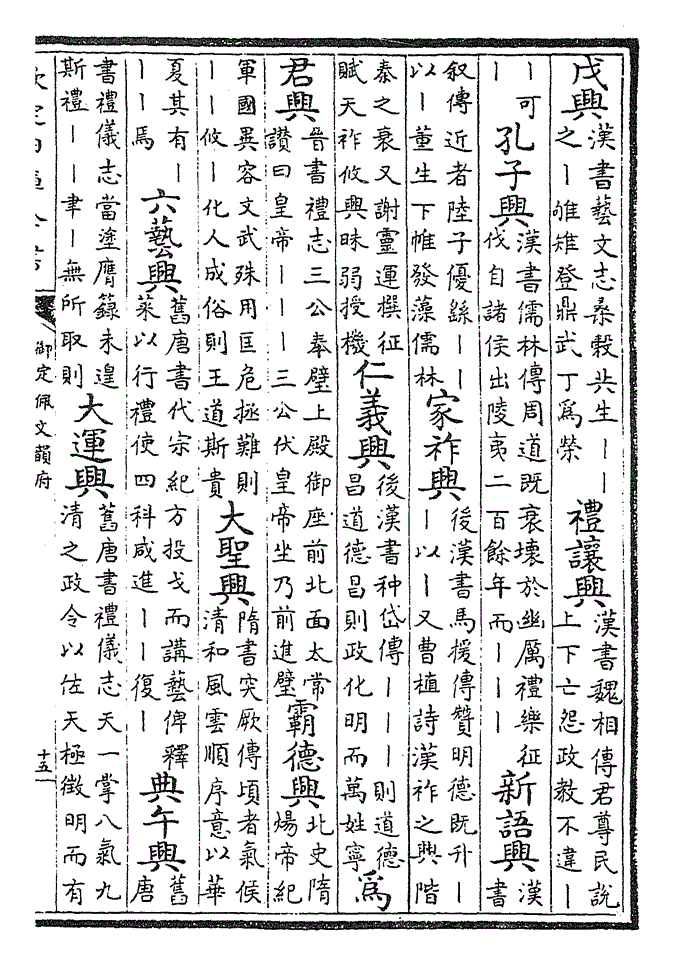 戊興漢書藝文志桑榖共生｜｜
之｜雊雉登鼎武丁爲榮
禮讓興漢書魏相傳君尊民說
上下亡怨政教不違｜
｜可
｜
孔子興漢書儒林傳周道既衰壞於幽厲禮樂征
伐自諸侯出陵夷二百餘年而｜｜｜
新語興漢
書
叙傳近者陸子優繇｜｜
以｜董生下帷發藻儒林
家祚興後漢書馬援傳贊明德既升｜
｜以｜又曹植詩漢祚之興階
秦之衰又謝靈運撰征
賦天祚攸興昧弱授機
仁義興後漢書种岱傳｜｜｜則道德
昌道德昌則政化明而萬姓寧
爲
君興晉書禮志三公奉璧上殿御座前北面太常
讚曰皇帝｜｜｜三公伏皇帝坐乃前進璧
霸德興北史隋
煬帝紀
軍國異容文武殊用匡危拯難則
｜｜攸｜化人成俗則王道斯貴
大聖興隋書突厥傳頃者氣候
清和風雲順序意以華
夏其有｜
｜｜焉
六藝興舊唐書代宗紀方投戈而講藝俾釋
菜以行禮使四科咸進｜｜復｜
典午興舊
唐
書禮儀志當塗膺籙未遑
斯禮｜｜聿｜無所取則
大運興舊唐書禮儀志天一掌八氣九
清之政令以佐天極徵明而有
御定佩文韻府
十五